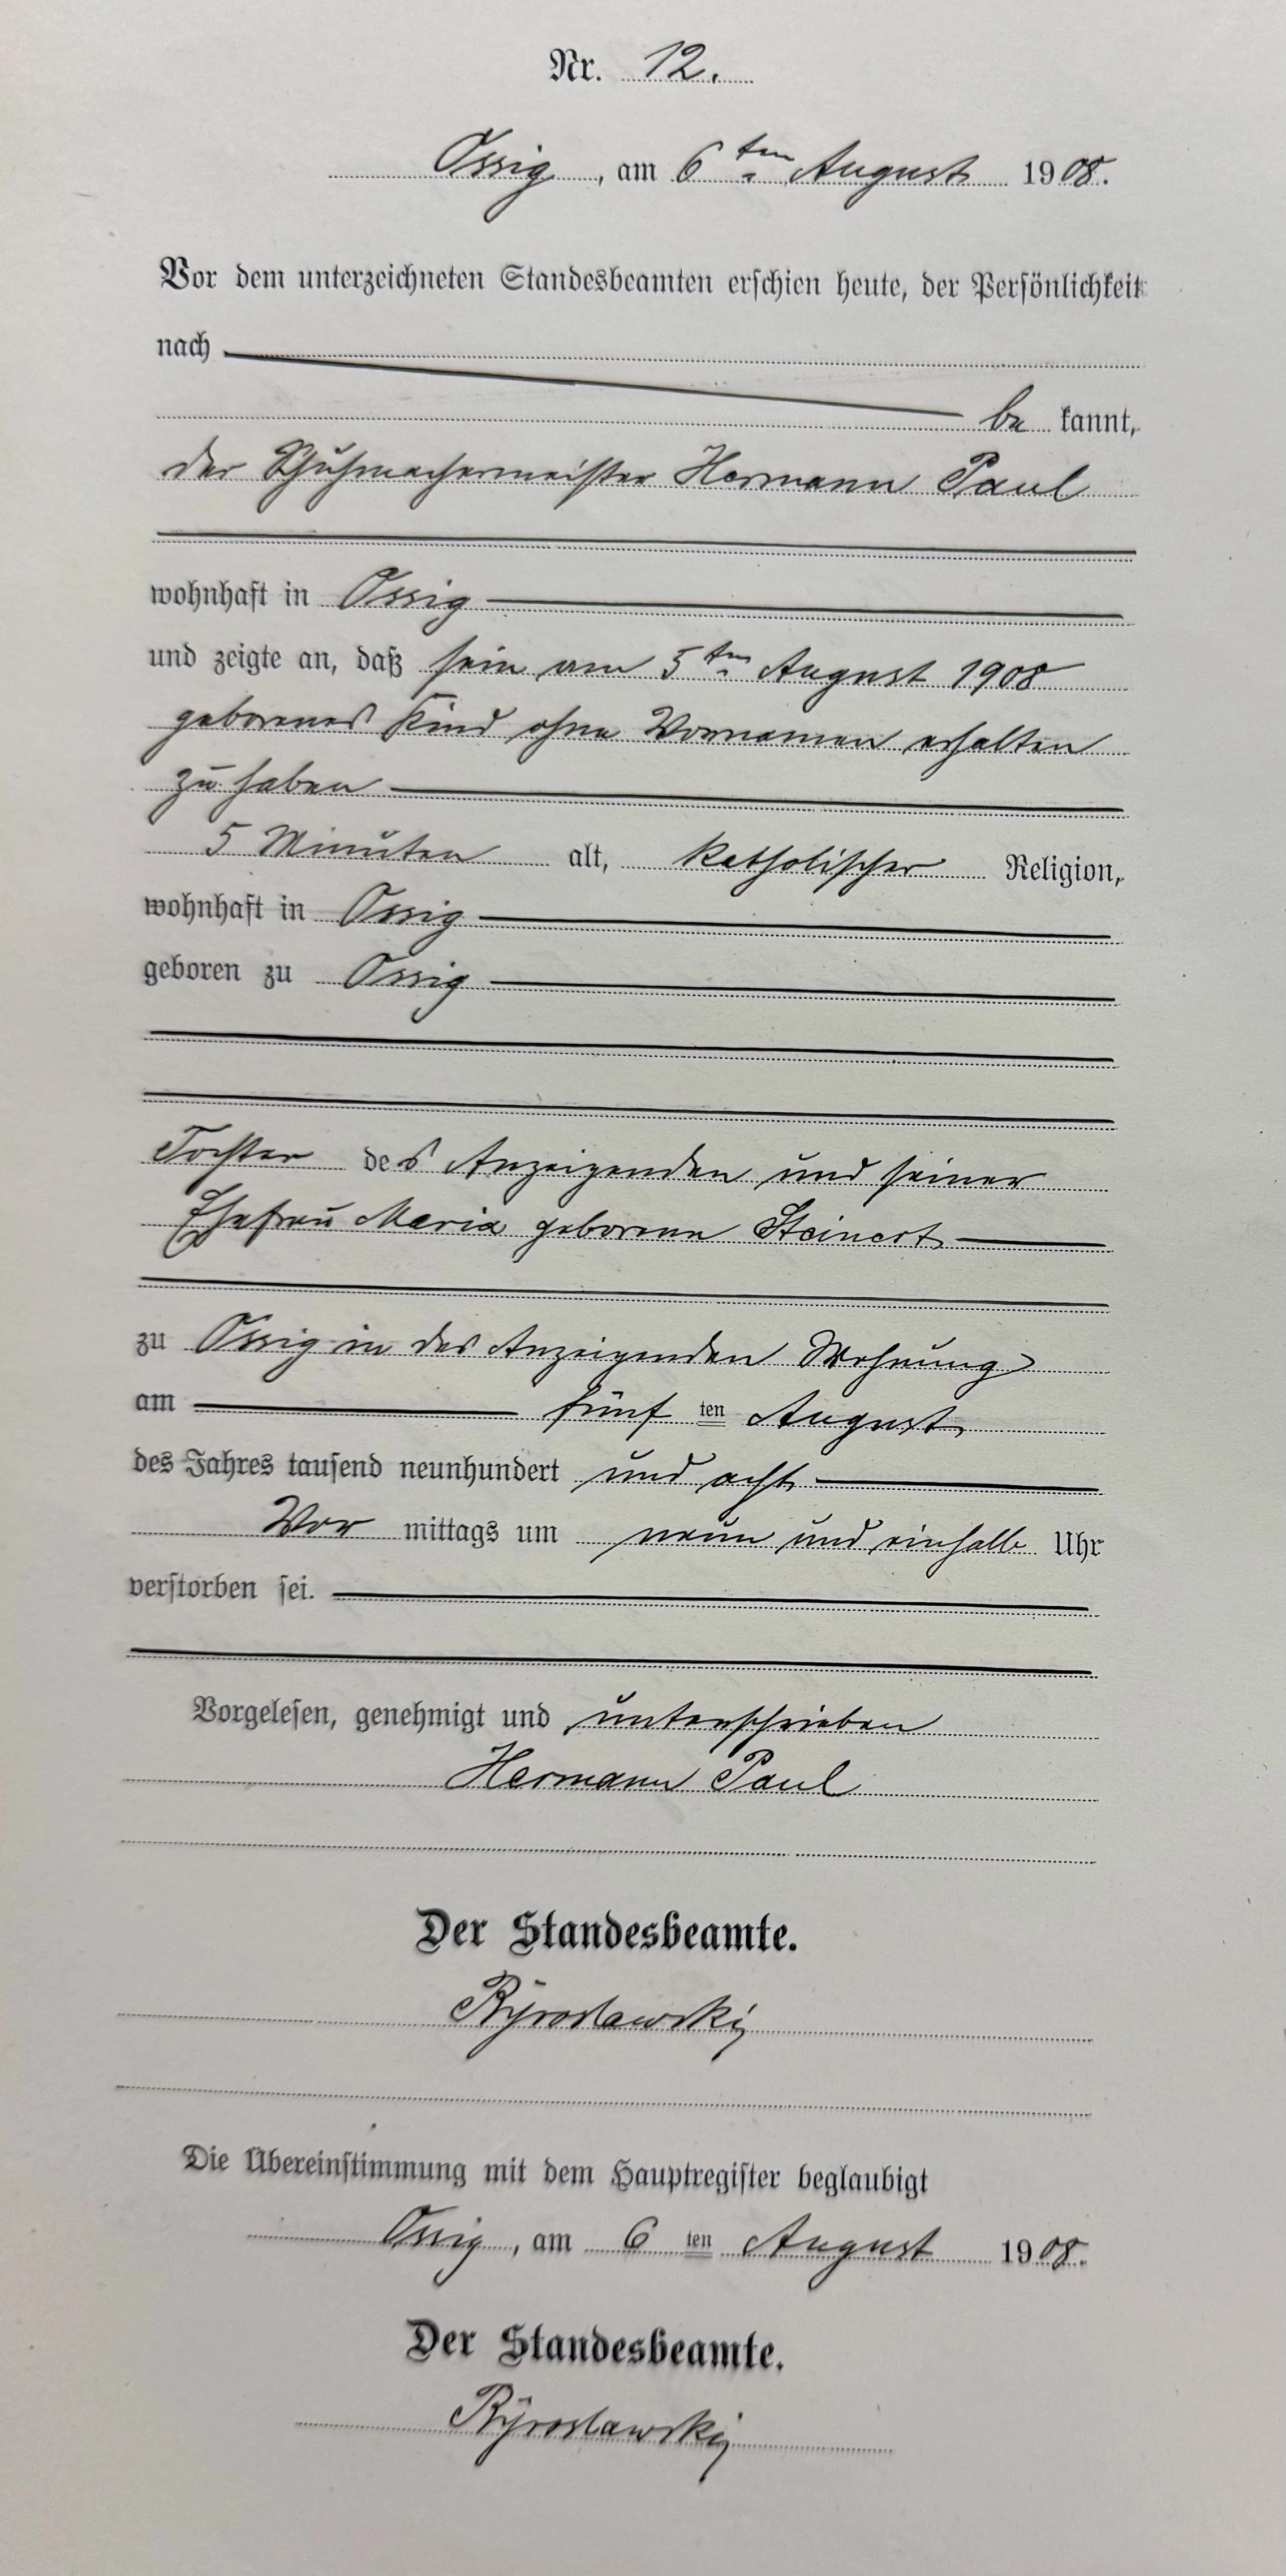 Nr. 12.
Ossig, am 6ten August 1908.
Vor dem unterzeichneten Standesbeamten erschien heute, der Persönlichkeit
nach
be kannt,
der Schuhmachermeister Hermann Paul
wohnhaft in Ossig
und zeigte an, daß sein am 5ten August 1908
geborenes Kind ohne Vornamen erhalten
zu haben
5 Minuten alt, katholischer Religion,
wohnhaft in Ossig
geboren zu Ossig
Tochter des Anzeigenden und seiner
Ehefrau Maria geborene Steinert
zu Ossig in des Anzeigenden Wohnung
am fünf ten August
des Jahres tausend neunhundert und acht
Vor mittags um neun und einhalb Uhr
verstorben sei.
Vorgelesen, genehmigt und unterschrieben
Hermann Paul
Der Standesbeamte.
Die Übereinstimmung mit dem Hauptregister beglaubigt
Ossig, am 6 ten August 1908.
Der Standesbeamte.